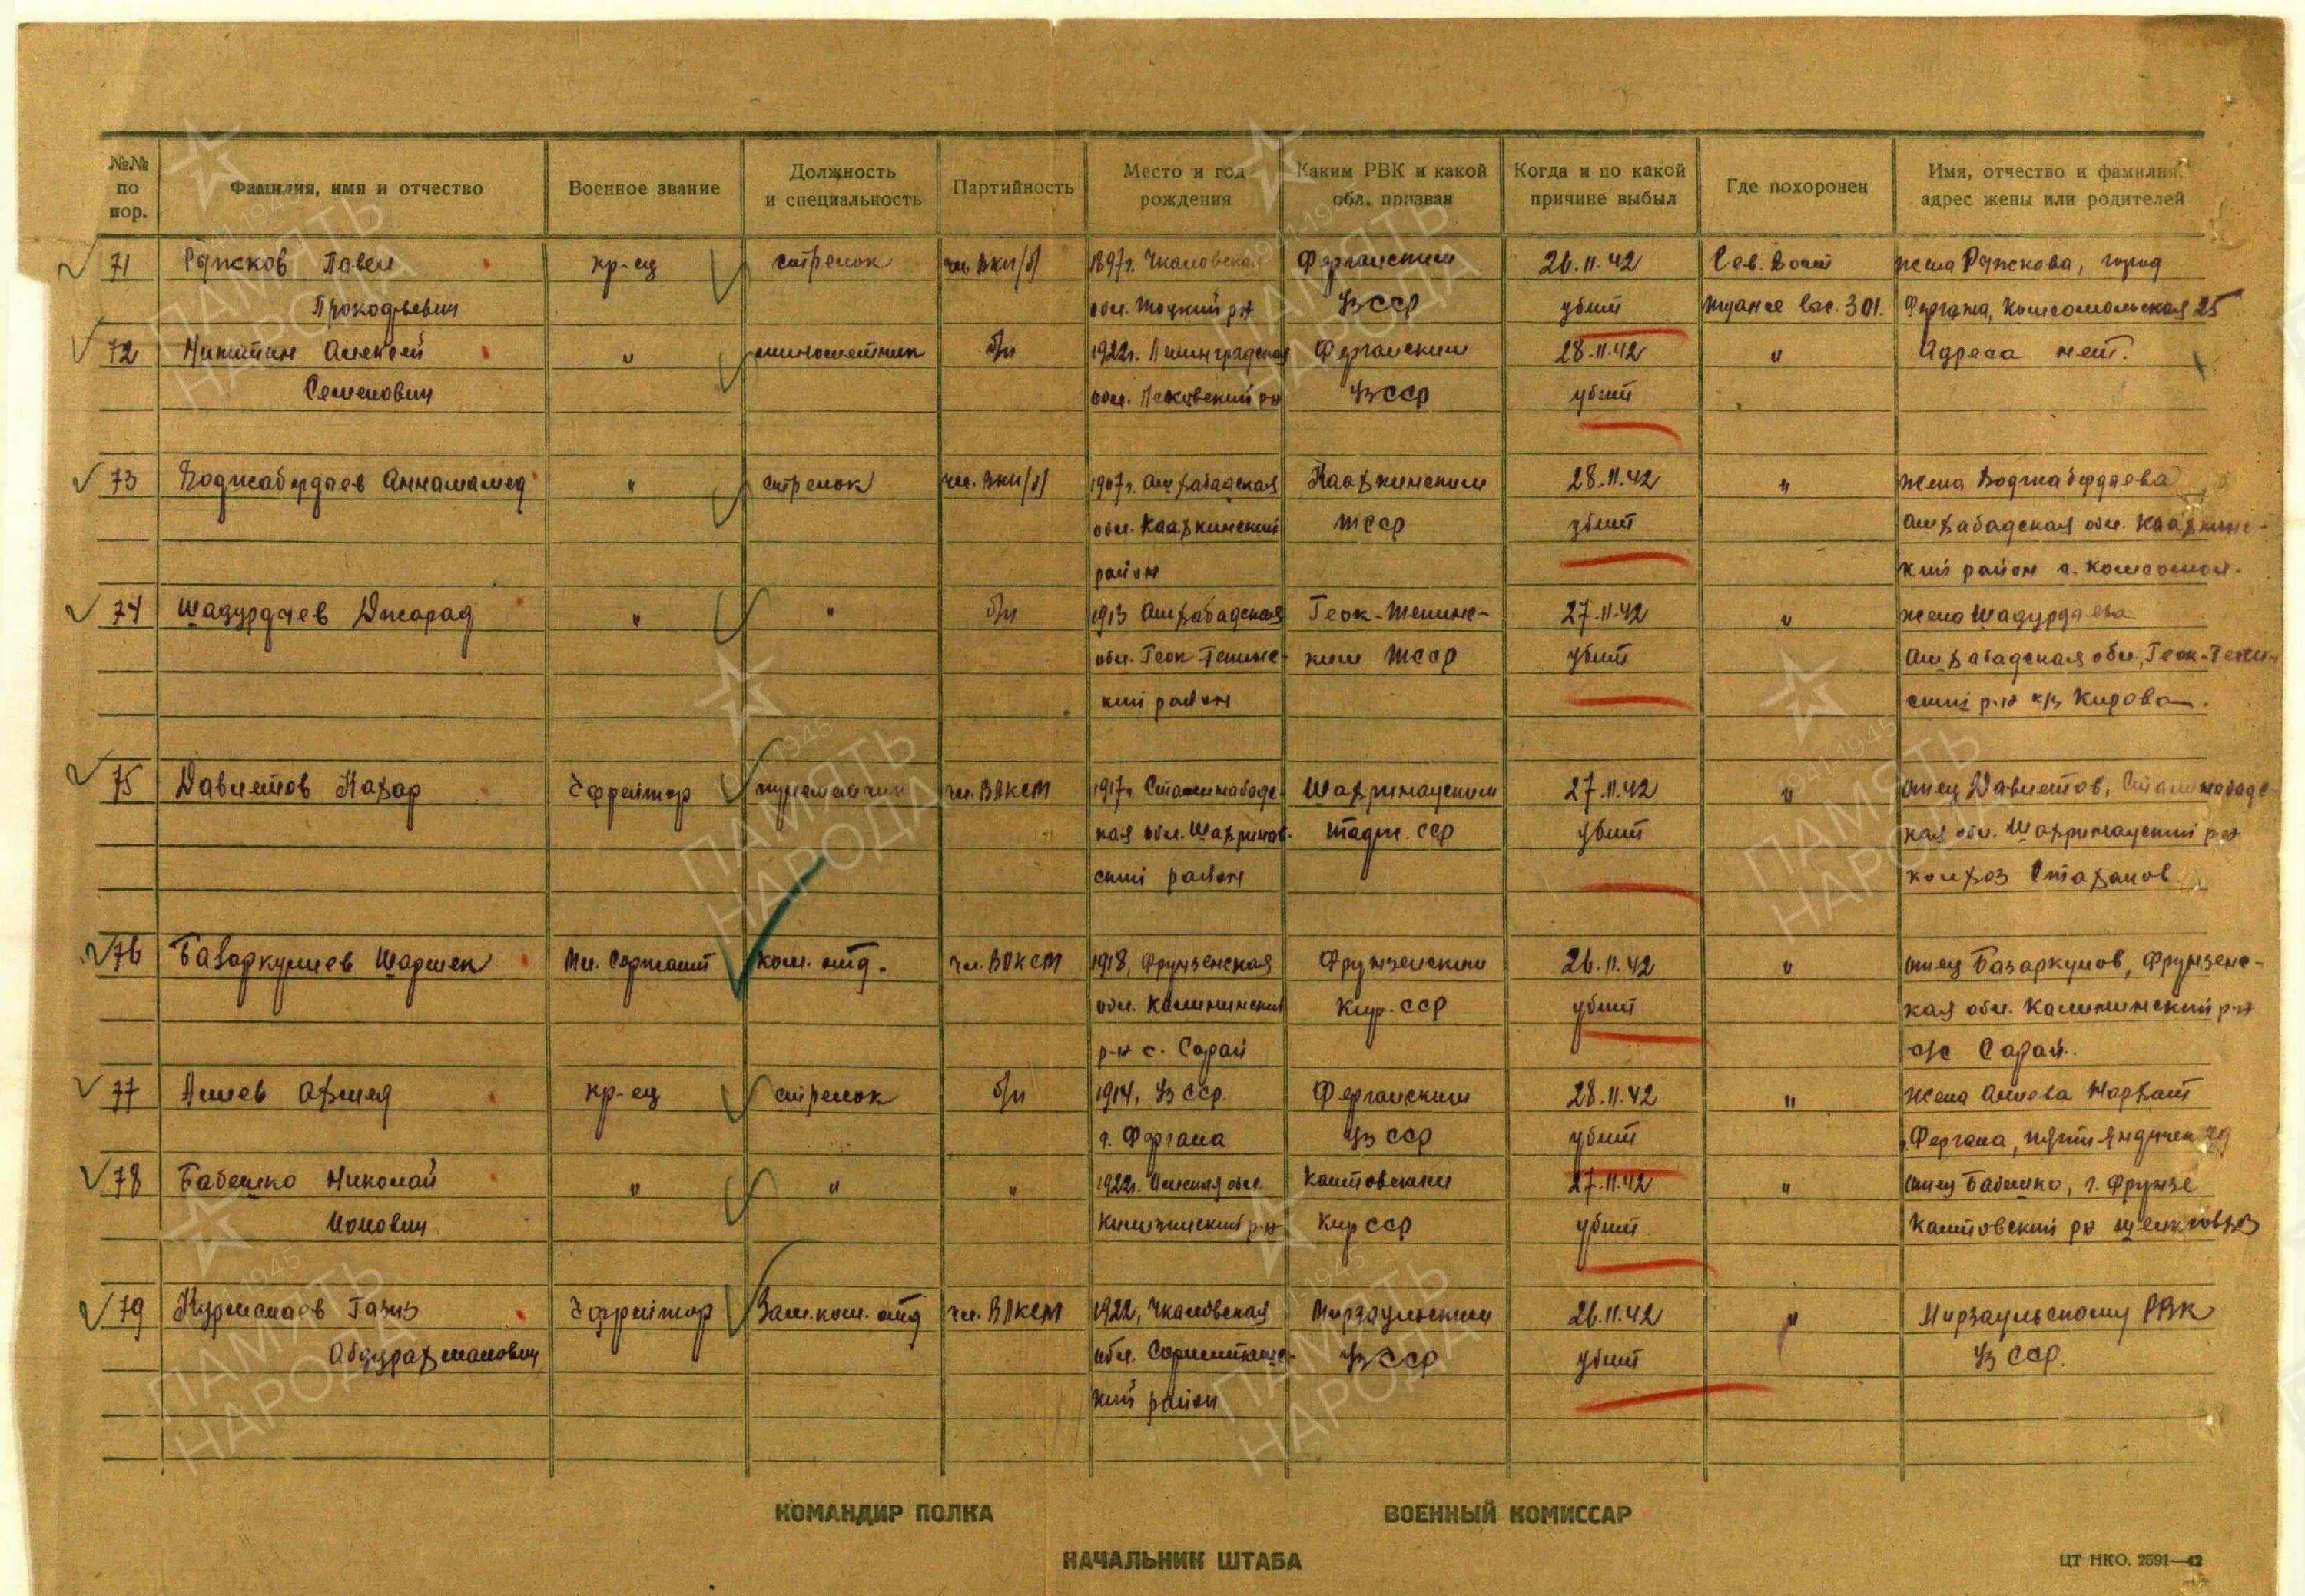 №№ по пор.
Фамилия, имя и отчество
Военное звание
Должность и специальность
Партийность
Место и год рождения
Каким РВК и какой обл. призван
Когда и по какой причине выбыл
Где похоронен
Имя, отчество и фамилия, адрес жены или родителей
71 Ряжков Павел кр-ец стрелок чл. ВКП/б/ 1897г. Чкаловская Ферганским 26.11.42 Сев. Вост жена Ряжкова, город
Прокофьевич обл. Тоцкий р-н УзССР убит Туапсе выс. 301. Фергана, Комсомольская 25
72 Никитин Алексей " минометчик б/п 1922г. Ленинградская Ферганским 28.11.42 " Адреса нет.
Семенович обл. Псковский р-н УзССР убит
73 Ходжабердаев Аннамамед " стрелок чл. ВКП/б/ 1907г. Ашхабадская Каахкинским 28.11.42 " жена Ходжабердаева
обл. Каахкинский ТССР убит Ашхабадская обл. Каахкинс-
район кий район с. Комсомол.
74 Шадурдаев Джорад " " б/п 1913 Ашхабадская Геок-Тепинс- 27.11.42 " жена Шадурдаева
обл. Геок-Тепинс- ким ТССР убит Ашхабадская обл, Геок-Тепин-
кий район ский р-н к/з Кирова.
75 Давлетов Кахар Ефрейтор чл. ВЛКСМ 1917г. Сталинабадс- Шахринауским 27.11.42 " отец Давлетов, Сталинабадс-
кая обл. Шахринау- Тадж. ССР убит кая обл. Шахринауский р-н
ский район колхоз Стаханов
76 Базаркулиев Шаршек Мл. Сержант ком. отд. чл. ВЛКСМ 1918, Фрунзенская Фрунзенским 26.11.42 " отец Базаркулов, Фрунзенс-
обл. Калининский Кир. ССР убит кая обл. Калининский р-н
р-н с. Сарай с/с Сарай.
77 Алиев Ахмед кр-ец стрелок б/п 1914, УзССР. Ферганским 28.11.42 " жена Алиева
г. Фергана УзССР убит г. Фергана,
78 Бабешко Николай " " " 1922г. Омская обл. Кантовским 27.11.42 " отец Бабешко, г. Фрунзе
Ионович р-н Кир ССР убит Кантовский р-н
79 Курманаев Газиз Ефрейтор Зам. ком. отд чл. ВЛКСМ 1922, Чкаловская Мирзаульским 26.11.42 " Мирзаульскому РВК
Абдурахманович обл. УзССР убит УзССР.
кий район
КОМАНДИР ПОЛКА
ВОЕННЫЙ КОМИССАР
НАЧАЛЬНИК ШТАБА
ЦТ НКО. 2591—42
1941-1945
ПАМЯТЬ
НАРОДА